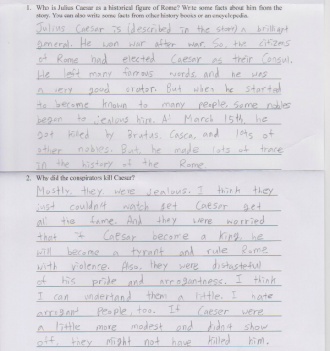 1. Who is Julius Caesar as a historical figure of Rome? Write some facts about him from the
story. You can also write some facts from other history books or an encyclopedia.
Julius Caesar is (described in the story) a brilliant
general. He won war after war. So, the citizens
of Rome had elected Caesar as their Consul.
He left many famous words and he was
a very good orator. But when he started
to become known to many people, some nobles
began to jealous him. At March 15th, he
got killed by Brutas, Casca, and lots of
other nobles. But, he made lots of trace
in the history of the Rome.
2. Why did the conspirators kill Caesar?
Mostly, they were jealous. I think they
just couldn't watch get Caesar get
all the fame. And they were worried
that if Caesar become a King, he
will become a tyrant and rule Rome
with violence. Also, they were distasteful
of his pride and arrogantness. I think
I can understand them a little. I hate
arrogant people, too. If Caesar were
a little more modest and didn't show
off, they might not have killed him.